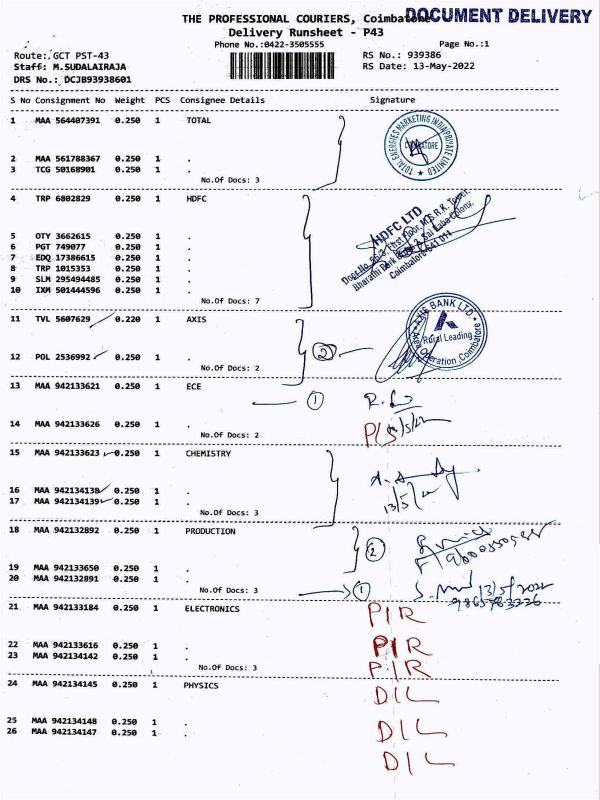 THE PROFESSIONAL COURIERS, Coimbatore
DOCUMENT DELIVERY
Delivery Runsheet - P43
Phone No.:0422-3505555 Page No.:1
Route: GCT PST-43 RS No.: 939386
Staff: M.SUDALAIRAJA RS Date: 13-May-2022
DRS No.: DCJB93938601
S No Consignment No Weight PCS Consignee Details Signature
1 MAA 564407391 0.250 1 TOTAL
TOTAL ENERGIES MARKETING INDIA PRIVATE LIMITED
COIMBATORE
2 MAA 561788367 0.250 1 .
3 TCG 50168901 0.250 1 .
No.Of Docs: 3
4 TRP 6802829 0.250 1 HDFC
HDFC LTD
Door No. 56/3, First Floor, M.S.R.K. Tower,
Bharathi Park Road 2, Sai Baba Colony,
Coimbatore-641 011
5 OTY 3662615 0.250 1 .
6 PGT 749077 0.250 1 .
7 EDQ 17386615 0.250 1 .
8 TRP 1015353 0.250 1 .
9 SLM 295494485 0.250 1 .
10 IXM 501444596 0.250 1 .
No.Of Docs: 7
11 TVL 5607629 0.220 1 AXIS
AXIS BANK LTD.
Rural Leading
Area Operation, Coimbatore
12 POL 2536992 0.250 1 . 2
No.Of Docs: 2
13 MAA 942133621 0.250 1 ECE
1
14 MAA 942133626 0.250 1 .
No.Of Docs: 2
15 MAA 942133623 0.250 1 CHEMISTRY
16 MAA 942134138 0.250 1 .
17 MAA 942134139 0.250 1 .
13/5/22
No.Of Docs: 3
18 MAA 942132892 0.250 1 PRODUCTION
2
19 MAA 942133650 0.250 1 .
20 MAA 942132891 0.250 1 .
No.Of Docs: 3 1 13/5/2022
21 MAA 942133184 0.250 1 ELECTRONICS P/R
22 MAA 942133616 0.250 1 . P/R
23 MAA 942134142 0.250 1 . P/R
No.Of Docs: 3
24 MAA 942134145 0.250 1 PHYSICS D/L
25 MAA 942134148 0.250 1 . D/L
26 MAA 942134147 0.250 1 . D/L